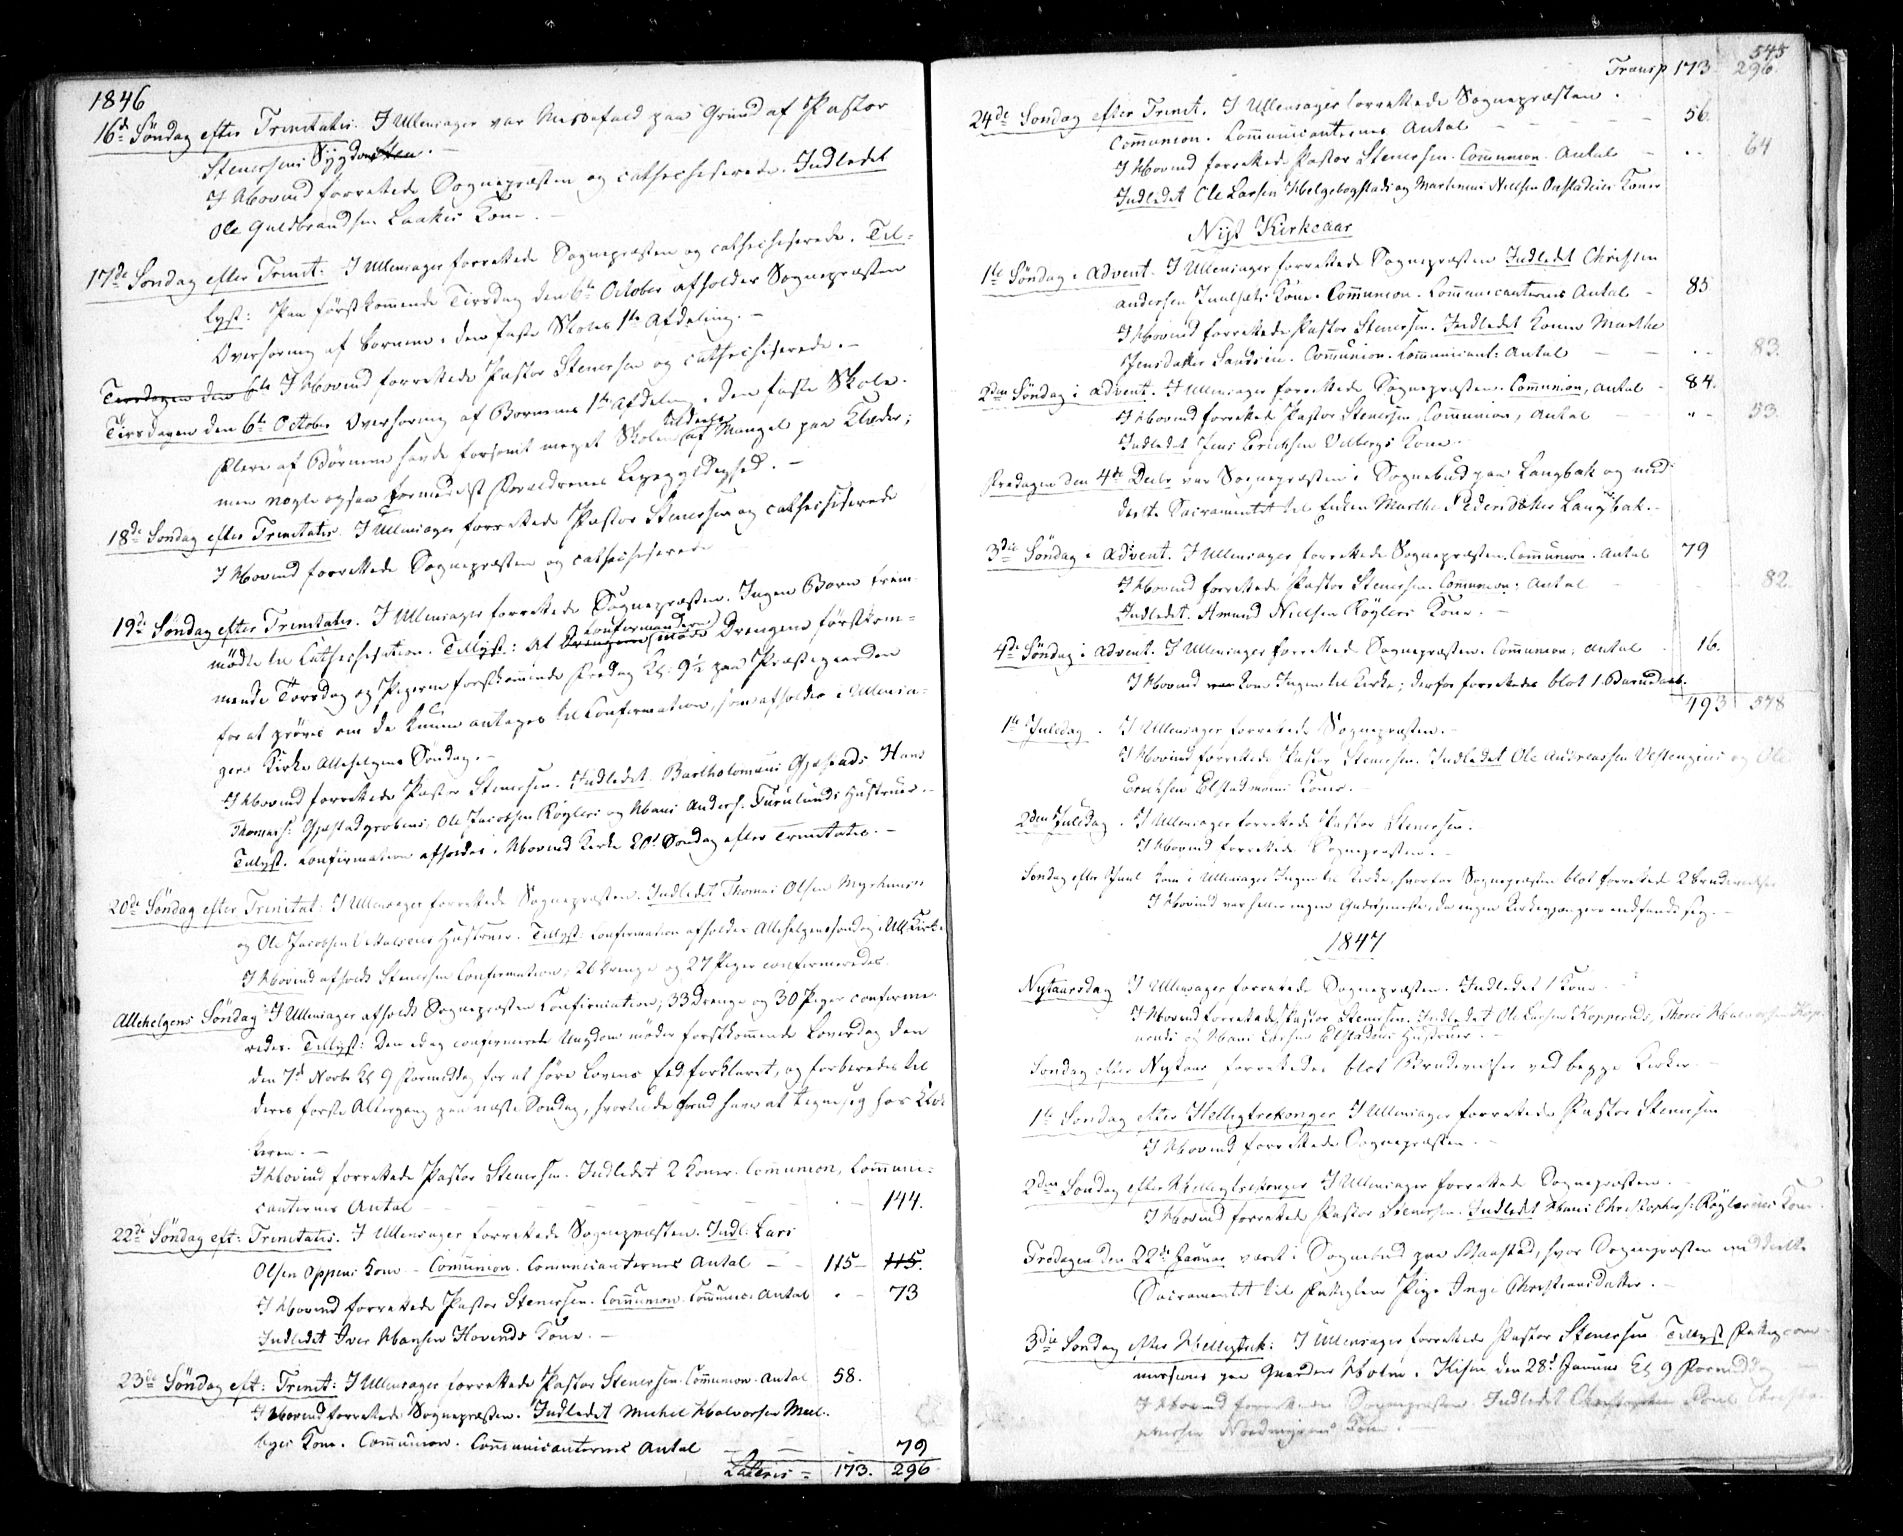 1846
16de Søndag efter Trinitatis. I Ullensager var Messefald paa Grund af Pastor
Stenersens Sygdom.
I Hovind forrettede Sognepræsten og cathechiserede. Indledet
Ole Guldbrandsen Laakes Kone.
17de Søndag efter Trinit: I Ullensager forrettede Sognepræsten og cathechiserede. Til-
lyst: Paa førstkommende Tirsdag den 6te October afholder Sognepræsten
Overhøring af Børnene i den faste Skoles 1ste Afdeling.
Tirsdagen den 6te I Hovind forrettede Pastor Stenersen og cathechiserede.
Tirsdagen den 6te October Overhøring af Børnenes 1ste Afdeling i den faste Skole.
Flere af Børnene havde forsømt meget Skolen tildeels af Mangel paa Klæder;
men nogle ogsaa formedelst Forældrenes Ligegyldighed.
18de Søndag efter Trinitatis. I Ullensager forrettede Pastor Stenersen og cathechiserede
I Hovind forrettede Sognepræsten og cathechiserede
19de Søndag efter Trinitatis. I Ullensager forrettede Sognepræsten. Ingen Børn frem-
mødte til Cathechisation. Tillyst: At Confirmanderne møde Drengene førstkom-
mende Torsdag og Pigerne førstkommende Fredag Kl: 9½ paa Præstegaarden
for at prøves om de kunne antages til Confirmation, som afholdes i Ullensa-
gers Kirke Allehelgens Søndag.
I Hovind forrettede Pastor Stenersen. Indledet Bartholomæus Gjestads Hans
Thomass: Gjestadgrobens, Ole Jacobsen Røglers og Hans Anders: Furulunds Hustruer.
Tillyst. Confirmation afholdes i Hovind Kirke 20de Søndag efter Trinitatis.
20de Søndag efter Trinitat: I Ullensager forrettede Sognepræsten. Indledet Thomas Olsen Myrhuuses
og Ole Jacobsen Hustruer. Tillyst: Confirmation afholdes Allehelgenssøndag i Ull. Kirke
I Hovind afholdt Stenersen Confirmation; 26 Drenge og 27 Piger confirmeredes.
Allehelgens Søndag I Ullensager afholdt Sognepræsten Confirmation; 33 Drenge og 30 Piger confirme-
redes. Tillyst: Den idag confirmerede Ungdom møder førstkommende Løverdag den
den 7de Novbr Kl 9 Formiddag for at høre Lovens Eed forklaret, og forberedes til
deres første Altergang paa næste Søndag, hvortil de forud have at tegne sig hos Klok-
keren.
I Hovind forrettede Pastor Stenersen. Indledet 2 Koner. Communion, Communi-
canternes Antal 144.
22de Søndag eft: Trinitatis. I Ullensager forrettede Sognepræsten. Indl: Lars
Olsen Oppens Kone - Communion. Communicanternes Antal 115 115.
I Hovind forrettede Pastor Stenersen. Communion. Communic: Antal 73
Indledet Iver Hansen Hovinds Kone.
23de Søndag eft: Trinit: I Ullensager forrettede Pastor Stenersen. Communion. Antal 58.
I Hovind forrettede Sognepræsten. Indledet Michel Halvorsen Mel-
byes Kone. Communion. Communicanternes Antal 79
Lateris = 173. 296
545
Transp 173 296.
24de Søndag efter Trinit. I Ullensager forrettede Sognepræsten.
Communion. Communicanternes Antal 56.
I Hovind forrettede Pastor Stenersen. Communion. Antal 64
Indledet Ole Larsen Helgebogstads og Martinus Nielsen Koner
Nyt Kirkeaar
1ste Søndag i Advent. I Ullensager forrettede Sognepræsten Indledet Christen
Andersen Kone. Communion. Communicanternes Antal 85
I Hovind forrettede Pastor Stenersen. Indledet Konen Marthe
Jensdatter. Communion. Communicant: Antal 83.
2den Søndag i Advent. I Ullensager forrettede Sognepræsten. Communion, Antal 84.
I Hovind forrettede Pastor Stenersen, Communion, Antal 53.
Indledet Jens Ericksen Velbergs Kone.
Fredagen den 4de Decbr var Sognepræsten i Sognebud paa Langbak og med-
deelte Sacramentet til Enken Marthe Pedersdatter Langbak.
3die Søndag i Advent. I Ullensager forrettede Sognepræsten. Communion. Antal 79
I Hovind forrettede Pastor Stenersen. Communion: Antal 82.
Indledet. Amund Nielsen Røglers Kone.
4de Søndag i Advent. I Ullensager forrettede Sognepræsten. Communion: Antal 16.
I Hovind kom Ingen til Kirke; derfor forrettedes blot 1 Barnedaab.
493 578
1ste Juledag. I Ullensager forrettede Sognepræsten.
I Hovind forrettede Pastor Stenersen. Indledet Ole Andreassen Vestengens og Ole
Ericksen Elstadmoens Koner.
2den Juledag. I Ullensager forrettede Pastor Stenersen.
I Hovind forrettede Sognepræsten.
Søndag efter Juul kom i Ullensager Ingen til Kirke, hvorfor Sognepræsten blot forrettede 2 Brudevielser
I Hovind var heller ingen Gudstjeneste, da ingen Kirkegjængere indfandt sig.
1847
Nytaarsdag I Ullensager forrettede Sognepræsten. Indledet 1 Kone.
I Hovind forrettede Pastor Stenersen. Indledet Ole Larsen Kopperuds, Thorer Halvorsen Kop-
peruds og Hans Larsen Elstadøens Hustruer.
Søndag efter Nytaar forrettedes blot Brudevielser ved begge Kirker.
1ste Søndag efter Helligtrekonger I Ullensager forrettede Pastor Stenersen
I Hovind forrettede Sognepræsten.
2den Søndag efter Helligtrekonger I Ullensager forrettede Sognepræsten.
I Hovind forrettede Pastor Stenersen. Indledet Hans Christophers: Røglernes Kone.
Fredagen den 22de Januar været i Sognebud paa Klanstad, hvor Sognepræsten meddeelte
Sacramentet til Pige Inge Christiansdatter.
3die Søndag efter Helligtrek: I Ullensager forrettede Pastor Stenersen Tillyst Fattigcom-
missions paa Gaarden Holm. Kisen den 28de Januar Kl 9 Formiddag
I Hovind forrettede Sognepræsten. Indledet Poul Christo-
phersen Nordmyrens Kone.